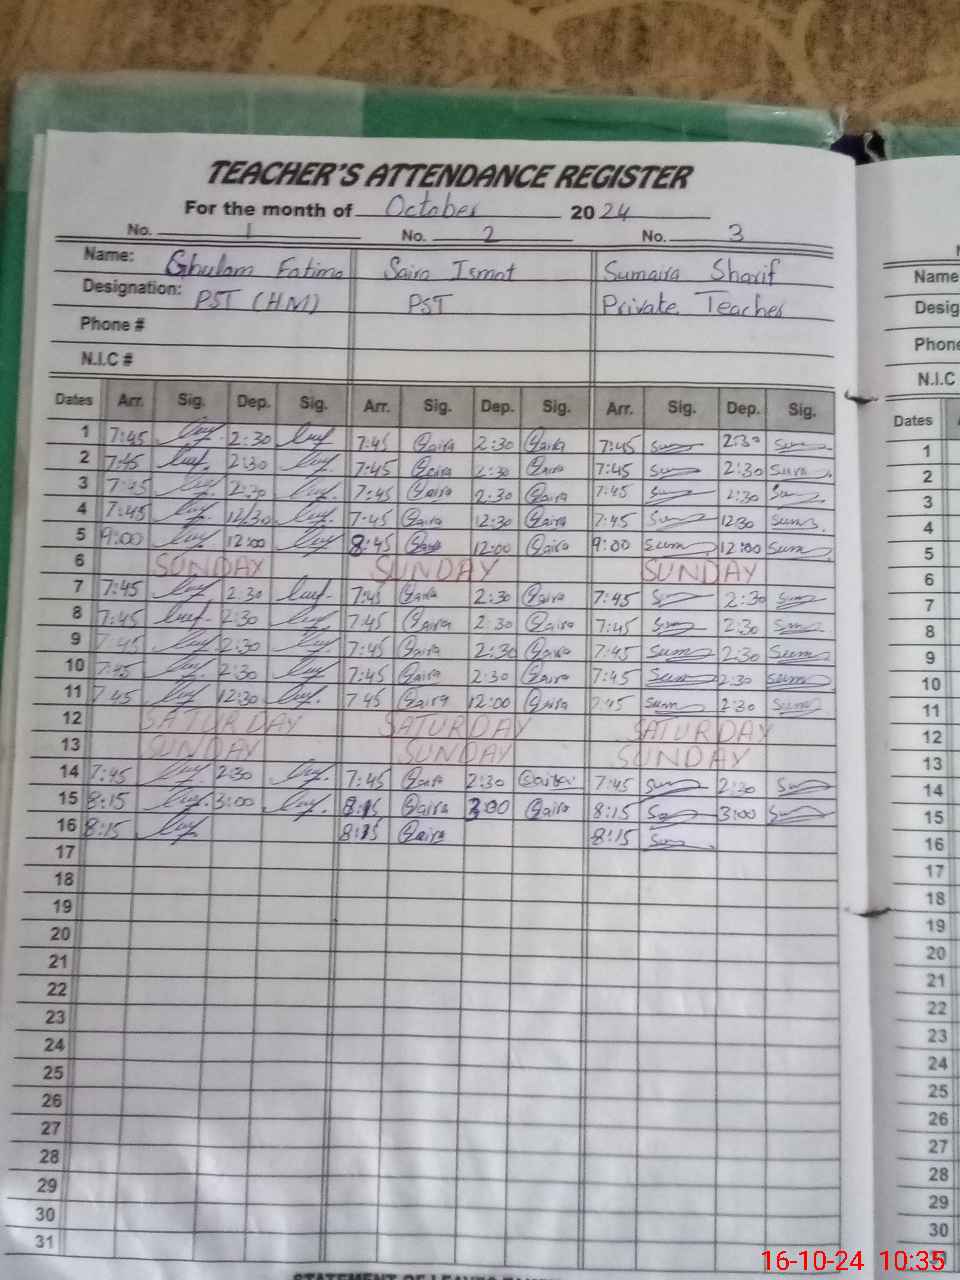 TEACHER'S ATTENDANCE REGISTER
For the month of October 2024
No. 1 No. 2 No. 3
Name: Ghulam Fatima Saira Ismat Sumaira Sharif
Designation: PST (HM) PST Private Teacher
Phone #
N.I.C #
Dates Arr. Sig. Dep. Sig. Arr. Sig. Dep. Sig. Arr. Sig. Dep. Sig.
1 7:45 2:30 7:45 Saira 2:30 Saira 7:45 Sum 2:30 Sum
2 7:45 2:30 7:45 Saira 2:30 Saira 7:45 Sum 2:30 Sum
3 7:45 2:30 7:45 Saira 2:30 Saira 7:45 Sum 2:30 Sum
4 7:45 12/30 7:45 Saira 12:30 Saira 7:45 Sum 1230 Sum
5 9:00 12:00 8:45 12:00 Saira 9:00 Sum 12:00 Sum
6 SUNDAY SUNDAY SUNDAY
7 7:45 2:30 7:45 Saira 2:30 Saira 7:45 Sum 2:30 Sum
8 7:45 2:30 7:45 Saira 2:30 Saira 7:45 Sum 2:30 Sum
9 7:45 2:30 7:45 Saira 2:30 Saira 7:45 Sum 2:30 Sum
10 7:45 2:30 7:45 Saira 2:30 Saira 7:45 Sum 2:30 Sum
11 7:45 12:30 7:45 Saira 12:00 Saira 7:45 Sum 2:30 Sum
12 SATURDAY SATURDAY SATURDAY
13 SUNDAY SUNDAY SUNDAY
14 7:45 2:30 7:45 Saira 2:30 7:45 Sum 2:30 Sum
15 8:15 3:00 8:15 Saira 3:00 Saira 8:15 Sum 3:00 Sum
16 8:15 8:15 Saira 8:15 Sum
17
18
19
20
21
22
23
24
25
26
27
28
29
30
31
Name
Desig
Phone
N.I.C
Dates
1
2
3
4
5
6
7
8
9
10
11
12
13
14
15
16
17
18
19
20
21
22
23
24
25
26
27
28
29
30
16-10-24 10:35